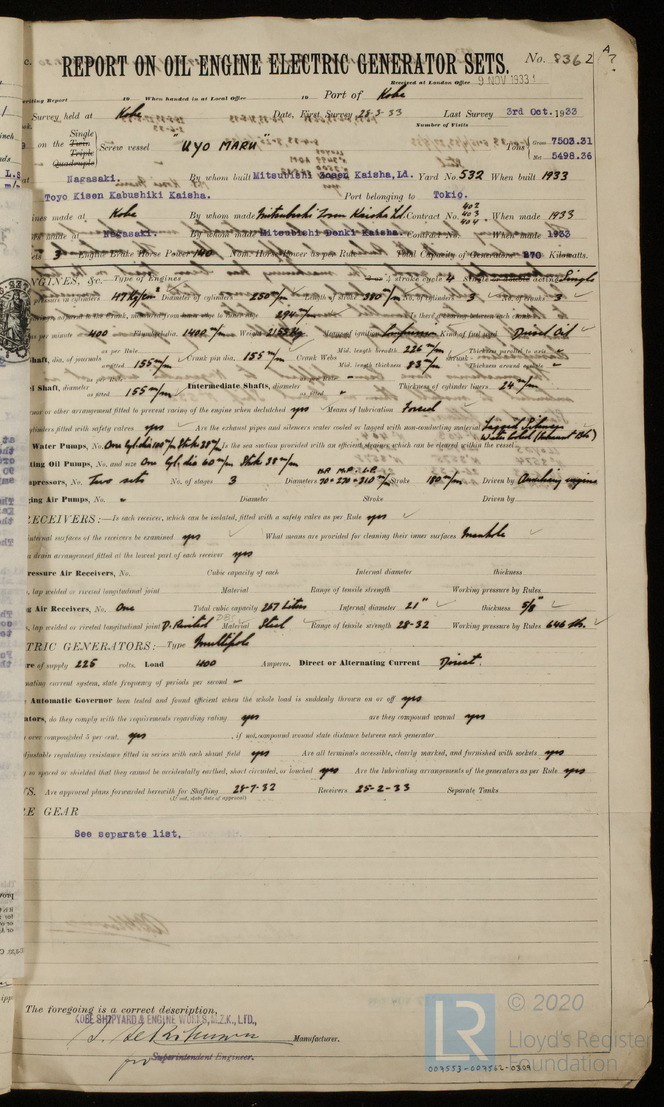 REPORT ON OIL ENGINE ELECTRIC GENERATOR SETS. No. 8362
Received at London Office 9 NOV 1933
Writing Report 19 When handed in at Local Office 19 Port of Kobe
Survey held at Kobe Date, First Survey 28-3-33 Last Survey 3rd Oct. 1933
Number of Visits
on the Single Twin Triple Quadruple Screw vessel "UYO MARU" Tons Gross 7503.31 Net 5498.36
Nagasaki. By whom built Mitsubishi Zosen Kaisha, Ld. Yard No. 532 When built 1933
Toyo Kisen Kabushiki Kaisha. Port belonging to Tokio.
ines made at Kobe By whom made Mitsubishi Zosen Kaisha Ld. Contract No. 402 403 404 When made 1933
made at Nagasaki. By whom made Mitsubishi Denki Kaisha. Contract No. When made 1933
ets 3 Engine Brake Horse Power 140 Nom. Horse Power as per Rule Total Capacity of Generators 270 Kilowatts.
ENGINES, &c. Type of Engines 2 or 4 stroke cycle 4 Single or double acting Single
in cylinders 47 Kg/cm Diameter of cylinders 250 m/m Length of stroke 380 m/m No. of cylinders 3 No. of cranks 3
294 m/m Is there a bearing between each crank
per minute 400 Flywheel dia. 1400 m/m Weight Means of ignition Compression Kind of fuel used Diesel Oil
Shaft, dia. of journals as per Rule as fitted 155 m/m Crank pin dia. 155 m/m Crank Webs Mid. length breadth 226 m/m Mid. length thickness 83 m/m shrunk Thickness parallel to axis Thickness around eyehole
el Shaft, diameter as per Rule as fitted 155 m/m Intermediate Shafts, diameter as per Rule as fitted Thickness of cylinder liners 24 m/m
nor or other arrangement fitted to prevent racing of the engine when declutched yes Means of lubrication Forced
ylinders fitted with safety valves yes Are the exhaust pipes and silencers water cooled or lagged with non-conducting material Lagged Silencer Water Cooled (Exhaust Pipe)
Water Pumps, No. One Cyl. dia 100 m/m Stroke 38 m/m Is the sea suction provided with an efficient strainer which can be cleared within the vessel
ting Oil Pumps, No. and size One Cyl. dia 60 m/m Stroke 38 m/m
mpressors, No. Two sets No. of stages 3 Diameters H.P. M.P. L.P. 70 × 270 × 310 m/m Stroke 180 m/m Driven by Auxiliary engine
ging Air Pumps, No. Diameter Stroke Driven by
RECEIVERS:—Is each receiver, which can be isolated, fitted with a safety valve as per Rule yes
internal surfaces of the receivers be examined yes What means are provided for cleaning their inner surfaces Manhole
a drain arrangement fitted at the lowest part of each receiver yes
ressure Air Receivers, No. Cubic capacity of each Internal diameter thickness
, lap welded or riveted longitudinal joint Material Range of tensile strength Working pressure by Rules
ng Air Receivers, No. One Total cubic capacity 267 Liters Internal diameter 21" thickness 5/8"
, lap welded or riveted longitudinal joint D. Riveted Material Steel Range of tensile strength 28-32 Working pressure by Rules 646 lbs.
TRIC GENERATORS:— Type Multipole
re of supply 225 volts. Load 400 Amperes. Direct or Alternating Current Direct.
nating current system, state frequency of periods per second —
Automatic Governor been tested and found efficient when the whole load is suddenly thrown on or off yes
ators, do they comply with the requirements regarding rating yes are they compound wound yes
over compounded 5 per cent. yes , if not compound wound state distance between each generator
djustable regulating resistance fitted in series with each shunt field yes Are all terminals accessible, clearly marked, and furnished with sockets yes
so spaced or shielded that they cannot be accidentally earthed, short circuited, or touched yes Are the lubricating arrangements of the generators as per Rule yes
S. Are approved plans forwarded herewith for Shafting 28-7-32 Receivers 25-2-33 Separate Tanks
(If not, state date of approval)
RE GEAR
See separate list.
The foregoing is a correct description,
KOBE SHIPYARD & ENGINE WORKS, M.Z.K., LTD.,
Manufacturer.
for Superintendent Engineer.
LR
© 2020
Lloyd's Register
Foundation
007553-007562-0309